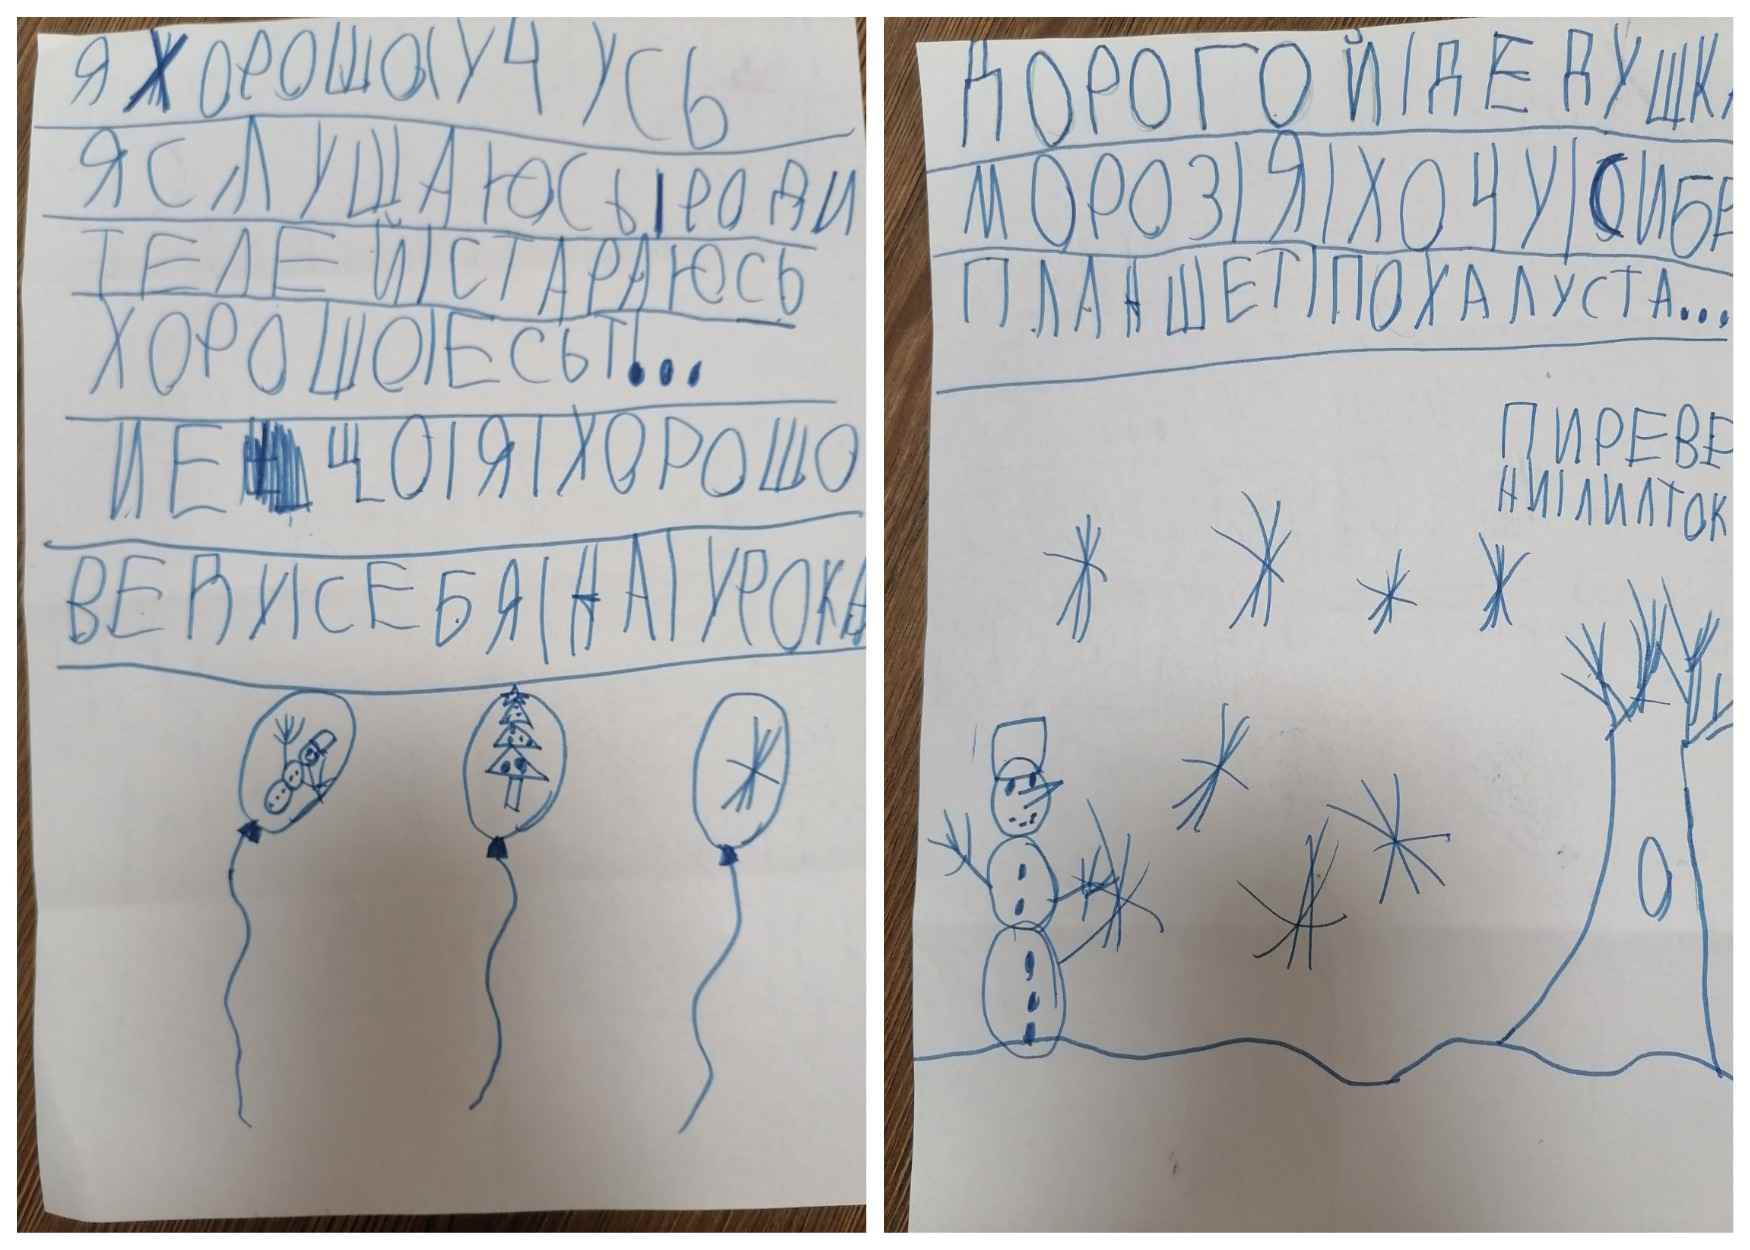 Я ХОРОШО|УЧУСЬ
ЯСЛУШАЮСЬ|РОДИ
ТЕЛЕЙ|СТАРАЮСЬ
ХОРОШО|ЕСЬТ...
ИЕЩО|Я|ХОРОШО
ВЕДИСЕБЯ|НА|УРОКА
ДОРОГОЙ|ДЕДУШКА
МОРОЗ|Я|ХОЧУ|СИБЕ
ПЛАНШЕТ|ПОХАЛУСТА...
ПИРЕВЕ
НИ|ЛИЛТОК